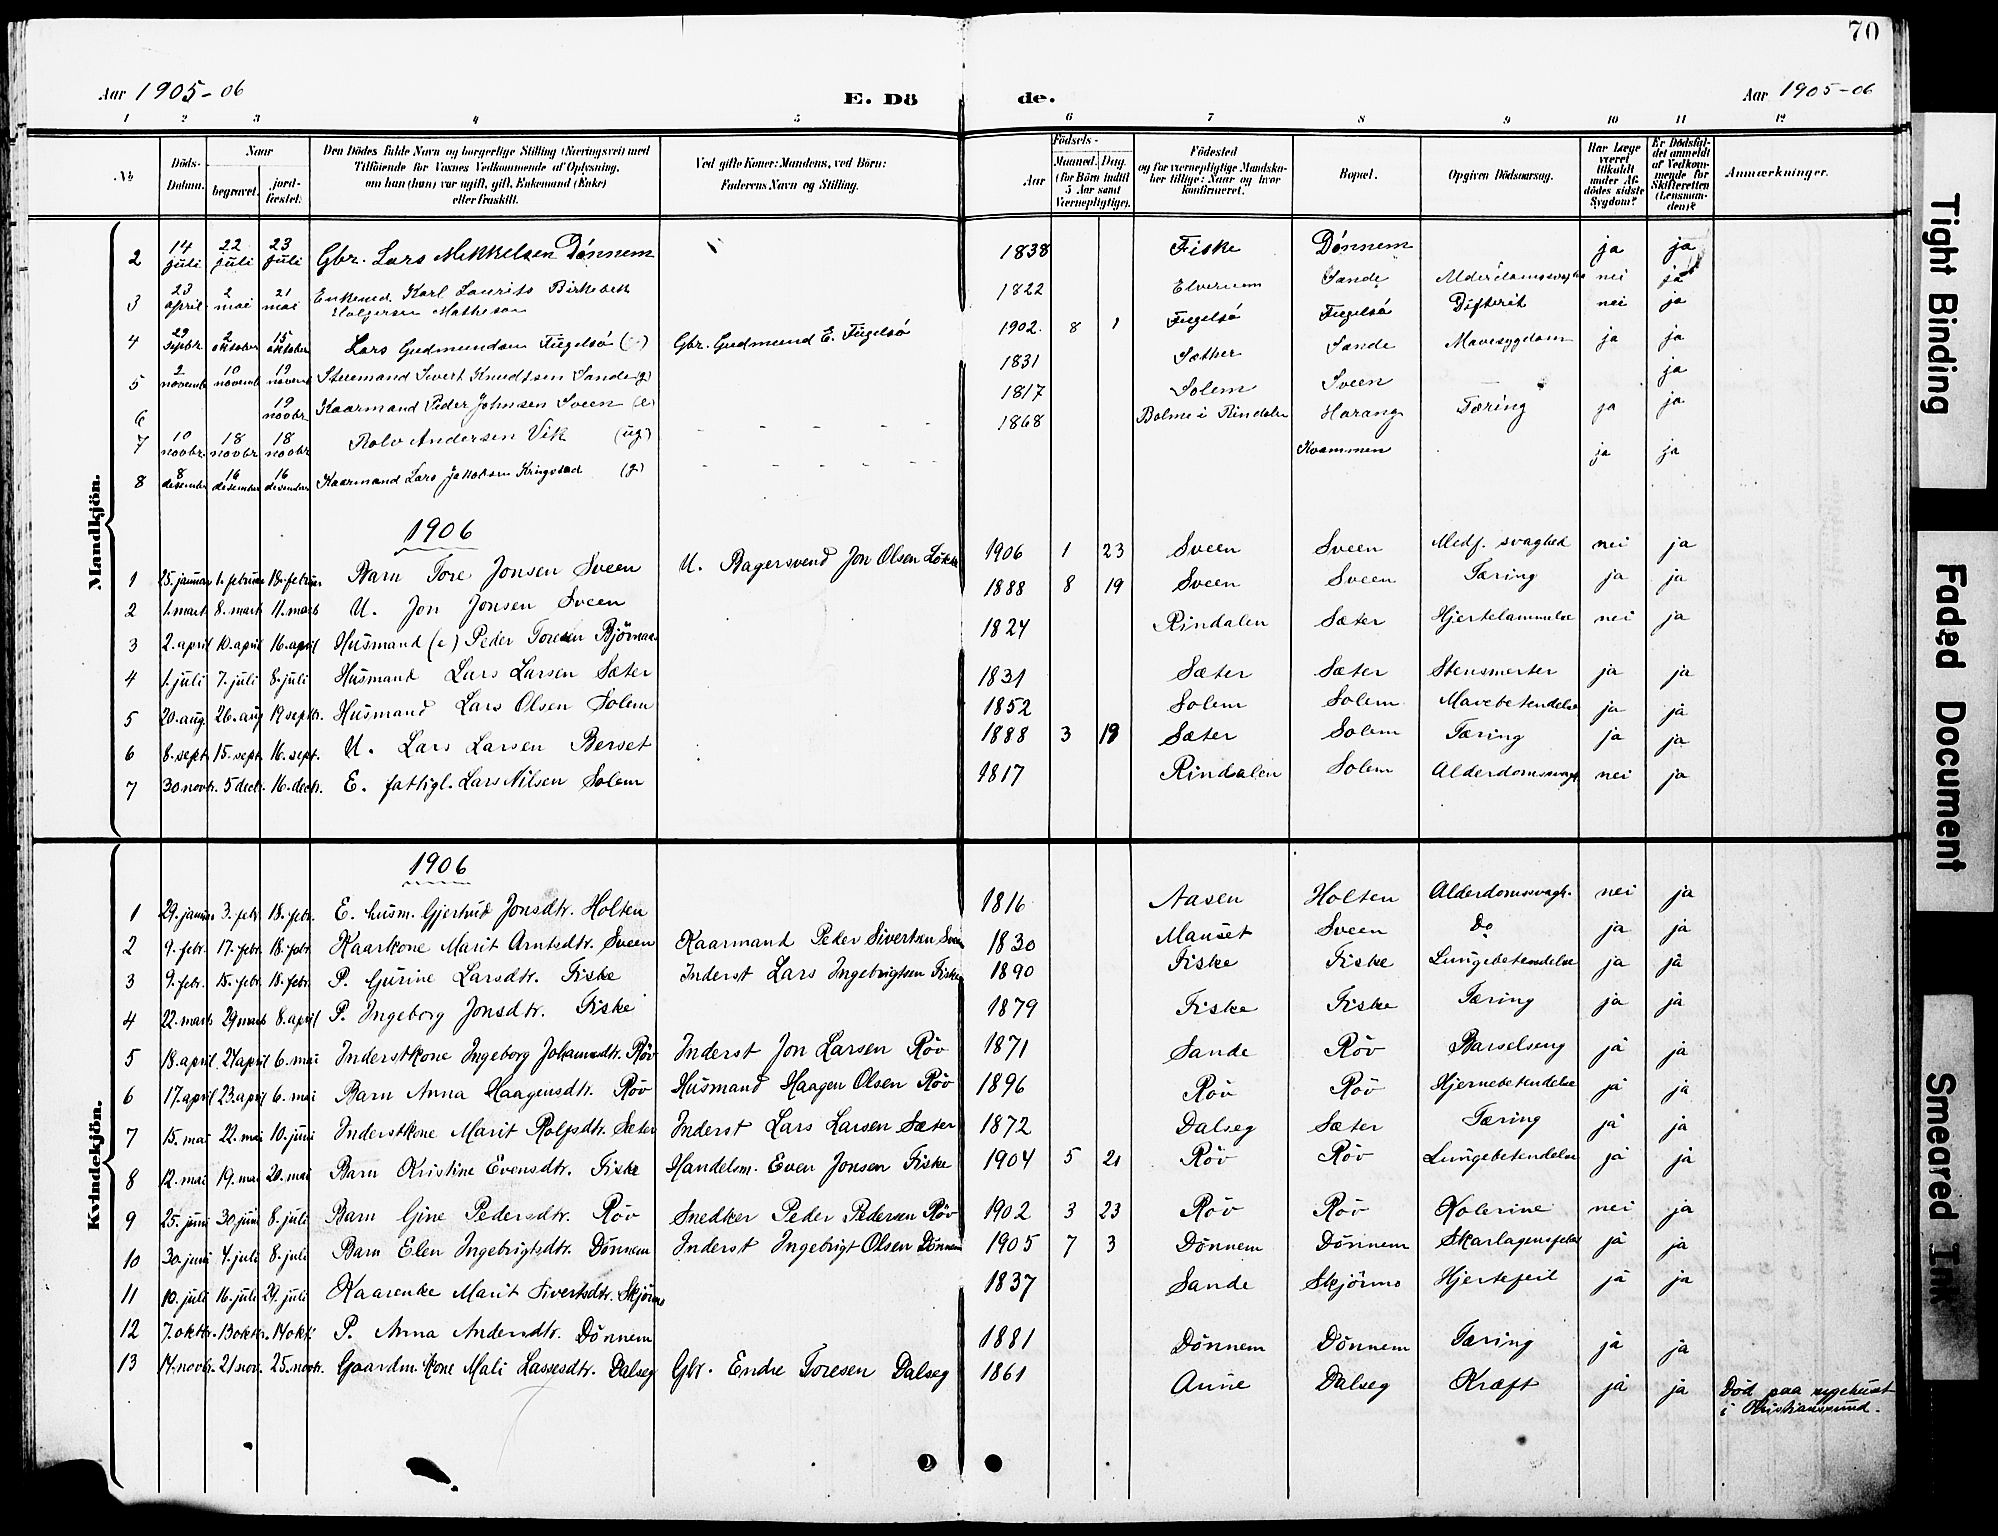 70
Aar 1905-06 E. Dö de. Aar 1905-06
1 2 3 4 5 6 7 8 9 10 11 12
No. Döds-Datum. Naar begravet. jord-fæstet. Den Dödes fulde Navn og borgerlige Stilling (Næringsvei) med Tilföiende for Voxnes Vedkommende af Oplysning, om han (hun) var ugift, gift, Enkemand (Enke) eller fraskilt. Ved gifte Koner: Mandens, ved Börn: Faderens Navn og Stilling. Födsels- Aar Maaned. Dag. (for Börn indtil 5 Aar samt Værnepligtige). Födested og for værnepligtige Mandskaber tillige: Naar og hvor konfirmeret. Bopæl. Opgiven Dödsaarsag. Har Læge været tilkaldt under Afdödes sidste Sygdom? Er Dödsfaldet anmeldt af Vedkommende for Skifteretten (Lensmanden)? Anmærkninger.
Mandkjön.
2 14 juli 22 juli 23 juli Gbr. Lars Mikkelsen Dönnem 1838 Fiske Dönnem ja ja
3 23 april 2 mai 21 mai Enkemd. Karl Laurits Birkebek Holgersen Mathesen 1822 Elverum Sande Alderdomssvaghe nei ja
4 29 septbr. 2 oktober 15 oktober Lars Gudmundsen Fugelsö Gbr. Gudmund E. Fugelsö 1902 8 1 Fugelsö Fugelsö Difterit nei ja
5 2 novemb 10 novemb 19 novemb Sivert Knudtsen Sande (g) 1831 Sæther Sande Mavesygdom ja ja
6 19 novbr. Kaarmand Peder Johnsen Sveen (e) 1817 Solem Sveen ja
7 10 novbr. 18 novbr 18 novbr Rolv Andersen Vik (ug) 1868 Bolme i Rindalen Harang Tæring ja ja
8 8 desember 16 desember 16 desember Kaarmand Lars Jakobsen Kringstad (g) Kvammen ja ja
1906
1 25. januar 1. februar 18. februar Barn Tore Jonsen Sveen U. Bagersvend Jon Olsen Lökk 1906 1 23 Sveen Sveen Medf. svaghed nei ja
2 1. mart 8. mart 11. mart U. Jon Jonsen Sveen 1888 8 19 Sveen Sveen Tæring ja ja
3 2. april 10. april 16. april Husmand (e) Peder Toresen Björnaas 1824 Rindalen Sæter Hjertelammelse nei ja
4 1. juli 7. juli 8. juli Husmand Lars Larsen Sæter 1831 Sæter Sæter Stensmerter ja ja
5 20. aug. 26. aug 19 septr. Husmand Lars Olsen Solem 1852 Solem Solem Mavebetendelse ja ja
6 8. sept. 15. sept. 16. sept. U. Lars Larsen Berset 1888 3 19 Sæter Solem Tæring ja ja
7 30 novbr. 5 decbr. 16. decbr. E. fattigl. Lars Nilsen Solem 1817 Rindalen Solem Alderdomssvagh. nei ja
Kvindekjön.
1906
1 29. januar 3. febr. 18. febr. E. husm. Gjertrud Jonsdtr. Holten 1816 Aasen Holten Alderdomssvagh. nei ja
2 9. febr. 17. febr. 18. febr. Kaarkone Marit Arntsdtr. Sveen Kaarmand Peder Sivertsen Sveen 1830 Mauset Sveen Do ja ja
3 9. febr. 15. febr. 18. febr. P. Gurine Larsdtr. Fiske Inderst Lars Ingebrigtsen Fiske 1890 Fiske Fiske Lungebetendelse ja ja
4 22. mart 29 mart 8. april P. Ingeborg Jonsdtr. Fiske 1879 Fiske Fiske Tæring ja ja
5 18. april 24 april 6. mai Inderstkone Ingeborg Johansdtr. Röv Inderst Jon Larsen Röv 1871 Sande Röv Barselseng ja ja
6 17. april 23. april 6. mai Barn Anna Haagensdtr. Röv Husmand Haagen Olsen Röv 1896 Röv Röv Hjernebetendelse ja ja
7 15. mai 22. mai 10. juni Inderstkone Marit Rolfsdtr. Sæter Inderst Lars Larsen Sæter 1872 Dalseg Sæter Tæring ja ja
8 12. mai 19. mai 20. mai Barn Kristine Evensdtr. Fiske Handelsm. Even Jonsen Fiske 1904 5 21 Röv Röv Lungebetendelse ja ja
9 25. juni 30. juni 8. juli Barn Gine Pedersdtr. Röv Snedker Peder Pedersen Röv 1902 3 23 Röv Röv Kolerine nei ja
10 30. juni 4. juli 8. juli Barn Elen Ingebrigtsdtr. Dönnem Inderst Ingebrigt Olsen Dönnem 1905 7 3 Dönnem Dönnem Skarlagensfeber ja ja
11 10. juli 16. juli 29. juli Kaarenke Marit Sivertsdtr. Skjörmo 1837 Sande Skjörmo Hjertefeil ja ja
12 7. oktbr. 13 oktbr. 14 okt. P. Anna Andersdtr. Dönnem 1881 Dönnem Dönnem Tæring ja ja
13 14. novbr. 21 nov. 25. novbr. Gaardm. kone Mali Lassesdtr. Dalseg Gbr. Endre Toresen Dalseg 1861 Aune Dalseg Kræft ja ja Död paa sygehuset
i Kristianssund.
Tight Binding
Faded Document
Smeared Ink